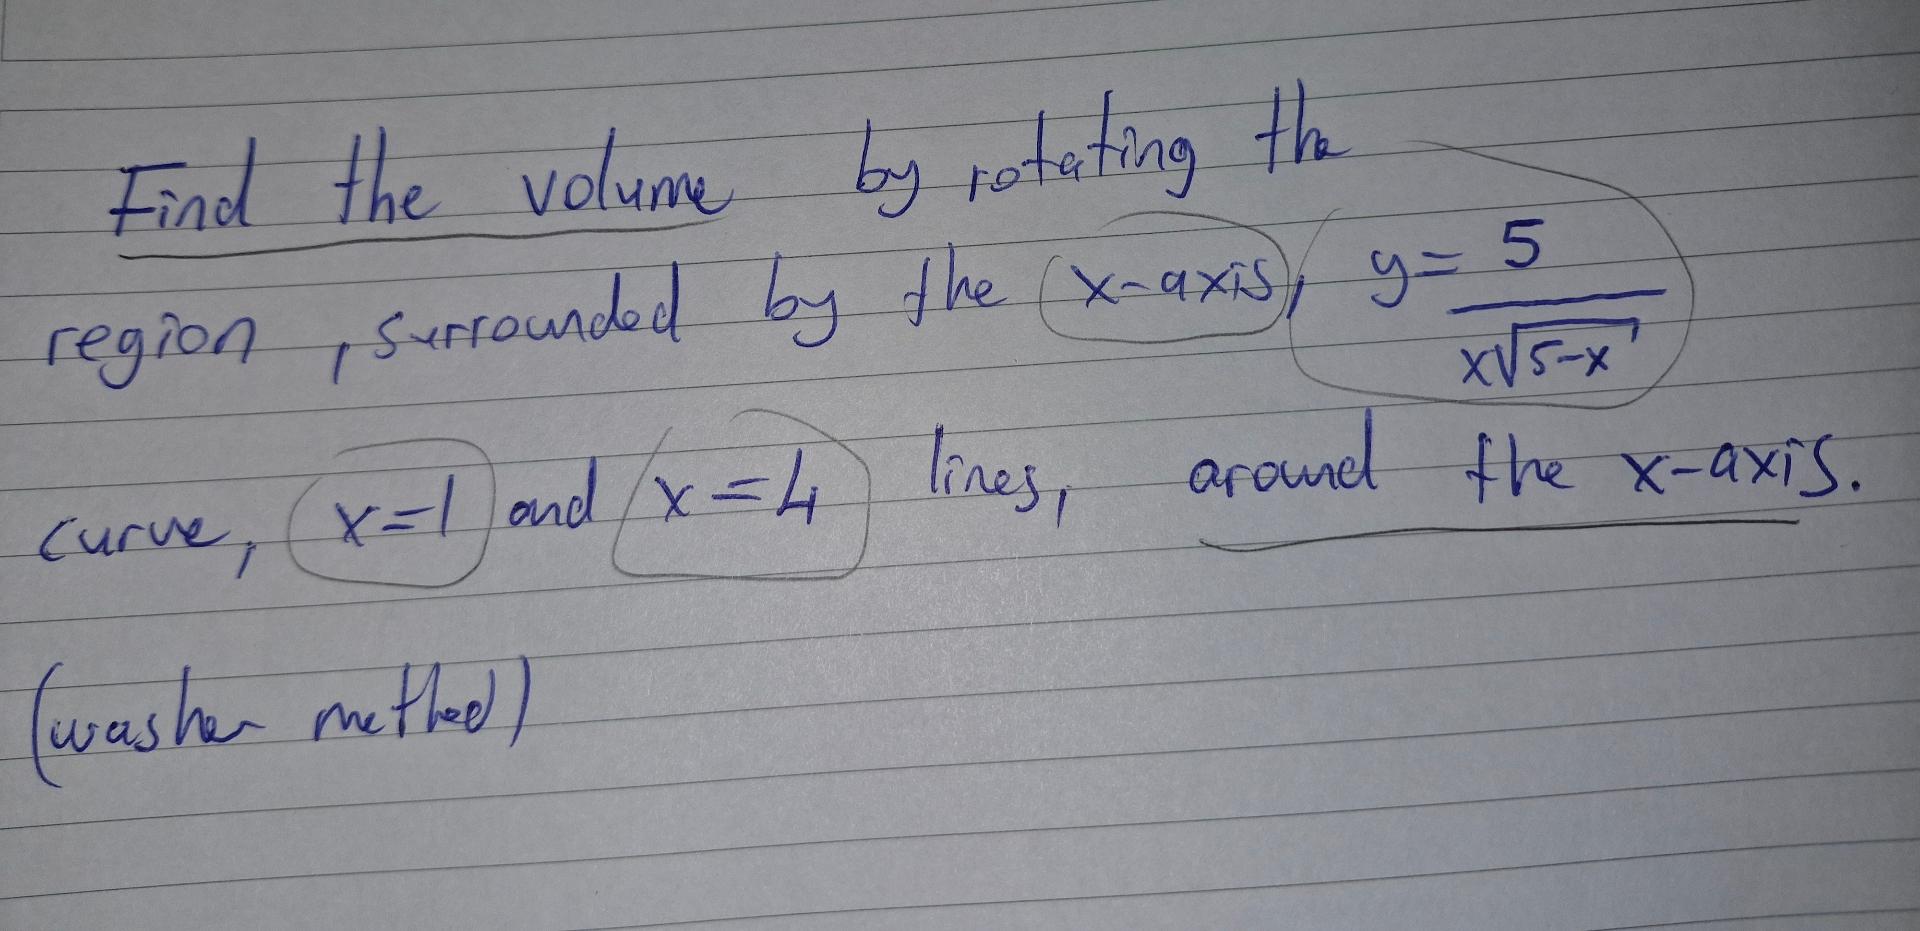 Find the volume by rotating the
region, surrounded by the x-axis, y = 5/(x√(5-x))
curve, x=1 and x=4 lines, around the x-axis.
(washer method)